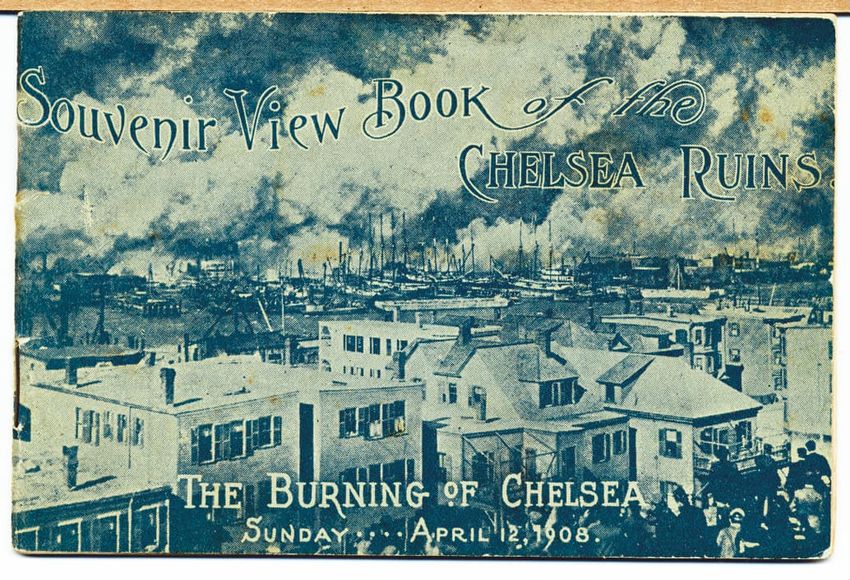 Souvenir View Book of the
Chelsea Ruins.
The Burning of Chelsea
Sunday....April 12, 1908.